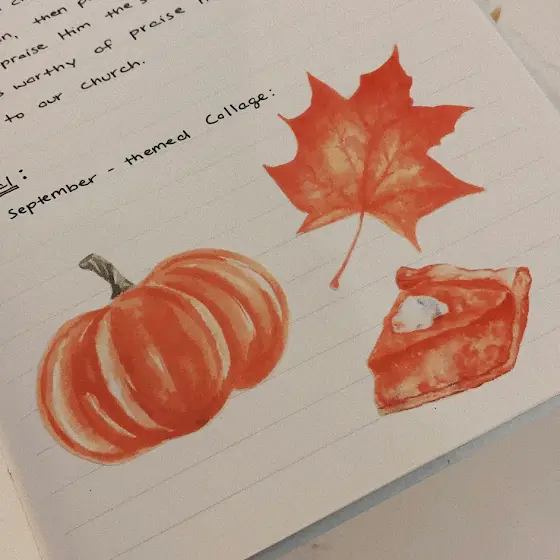 then
praise Him the
worthy of praise
to our church.
September - themed Collage: